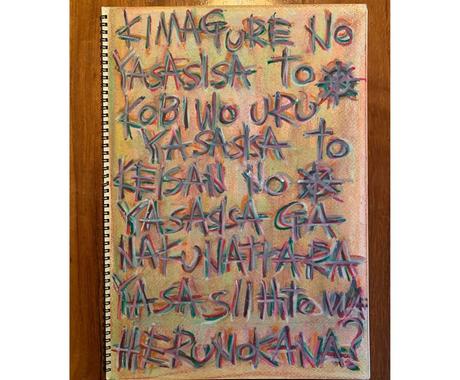 KIMAGURE NO
YASASISA TO
KOBI WO URU
YASASISA TO
KEISAN NO
YASASISA GA
NAKUNATTARA
YASASII HITO WA
HERUNOKANA?